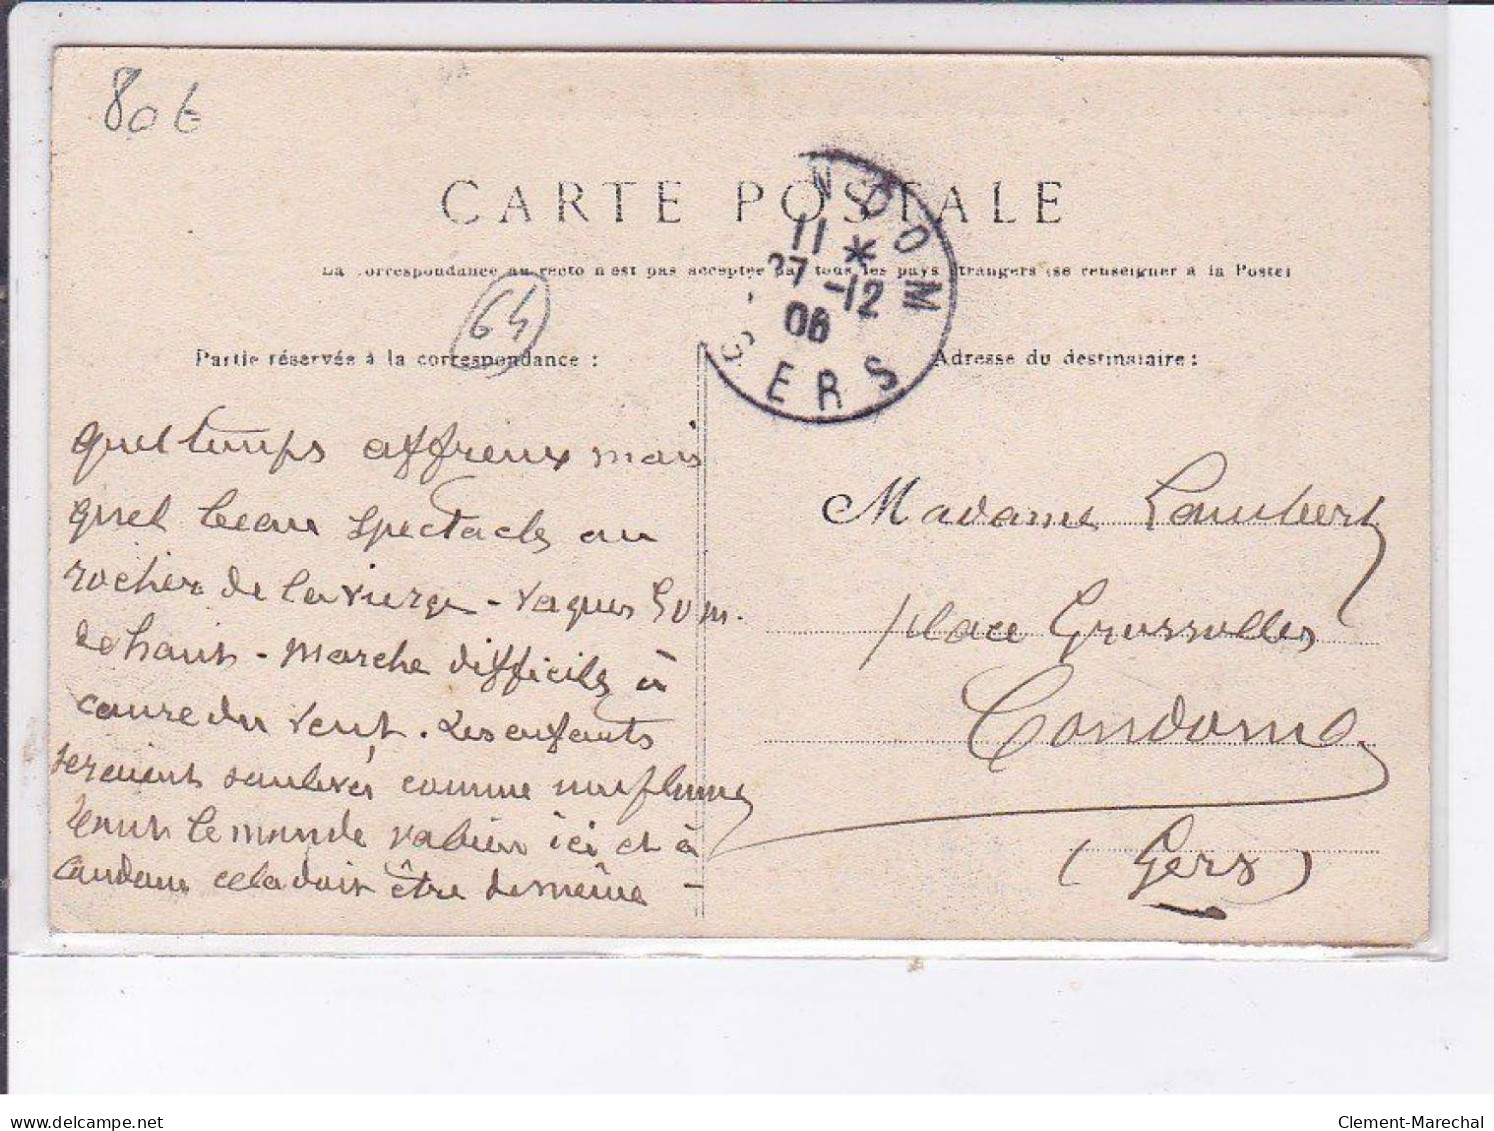 80€
CARTE POSTALE
La correspondance au recto n'est pas acceptée par tous les pays étrangers (se renseigner à la Poste)
NDOM
11 *
27 -12
06
GERS
64
Partie réservée à la correspondance :
Adresse du destinataire :
quel temps affreux mais
quel beau spectacle au
rocher de la vierge - vagues 50 m.
de haut - marche difficile à
cause du vent. Les enfants
seraient soulevés comme une plume
tout le monde va bien ici et à
Condom cela doit être de même -
Madame Lambert
place
Condom
(Gers)
delcampe.net
Clement-Marechal